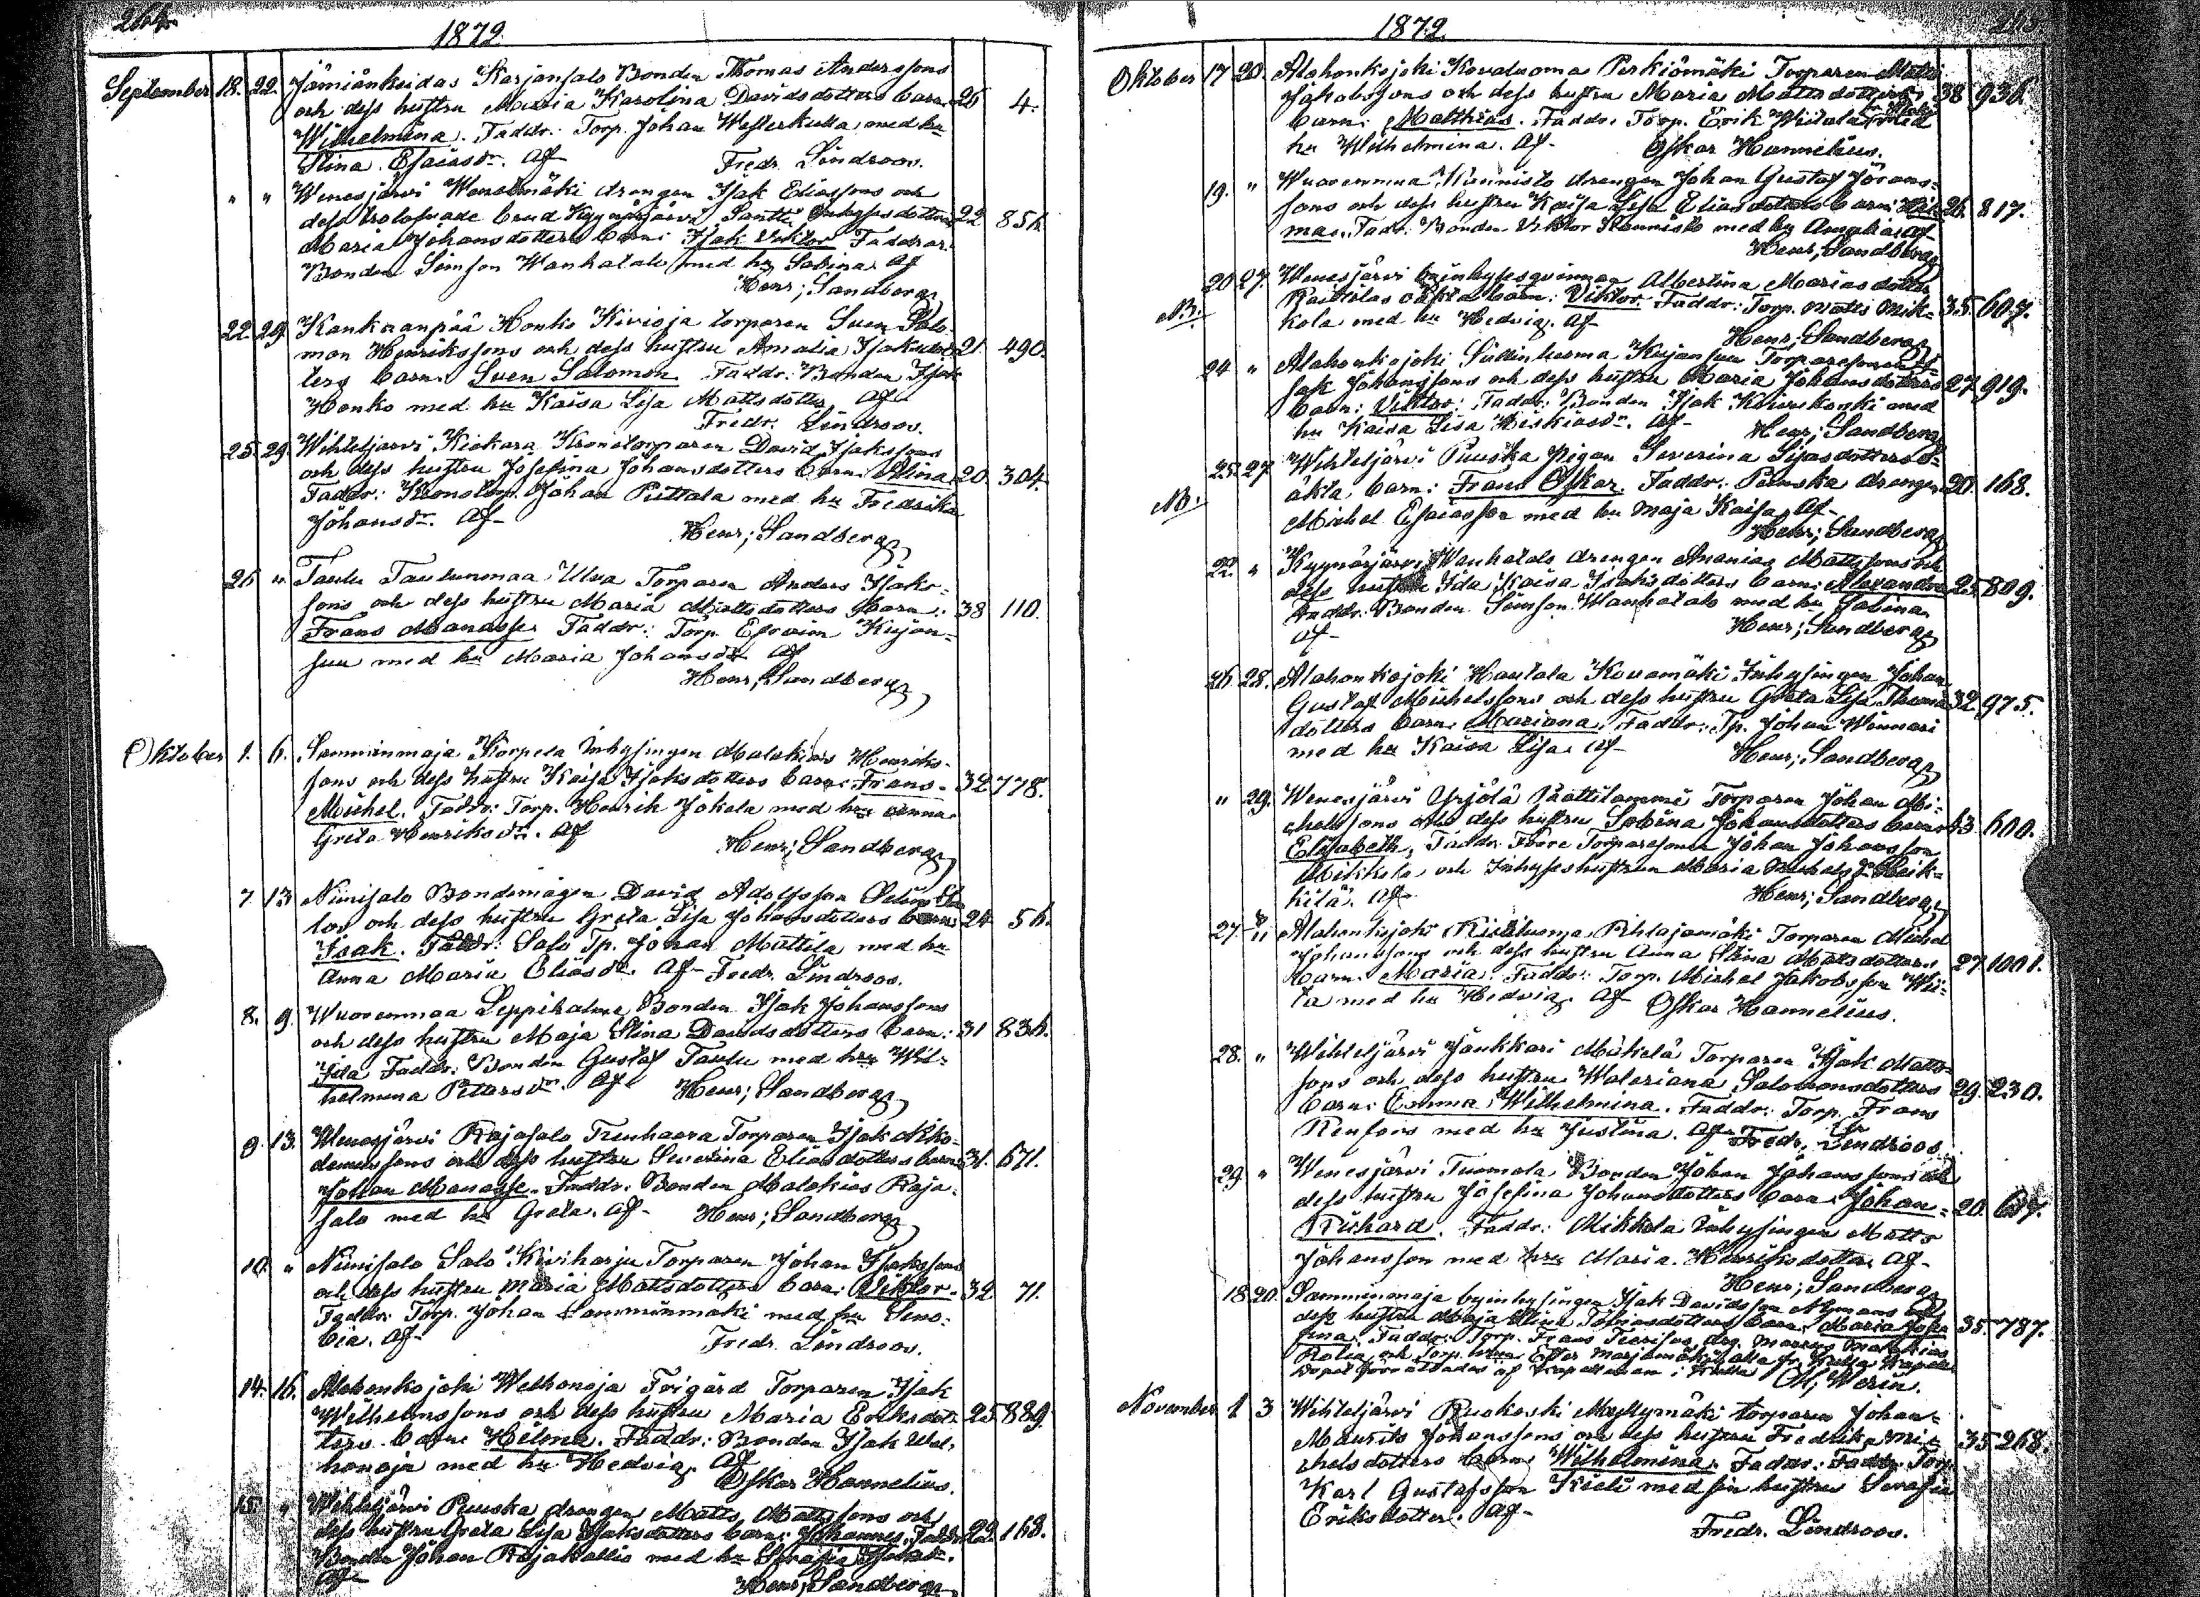 264.
1879.
September 18. 22. Jämiänkeidas Karjansalo Bonden Thomas Anderssons
och dess hustru Maria Karolina Davidsdotters barn 26 4.
Wilhelmina. Faddr: Torp. Johan Westerkulla med hu
Stina Esaiasdr. Af Fredr. Lindroos.
" " Wenesjärvi drengen Isak Eliassons och
dess trolofvade brud Kyynärjärvi Santti
Maria Johansdotters barn: Isak Viktor Faddrar:
Bonden Simson Wanhatalo med hu Sabina. Af
Henr; Sandberg
22. 29. Kankaanpää Honko Kivioja torparen Sven Salo-
mon Henrikssons och dess hustru Amalia Isaksdot- 21. 490.
ters barn. Sven Salomon. Faddr: Bonden Isak
Honko med hu Kaisa Lisa Mattsdotter. Af
Fredr. Lindroos.
25. 29. Wihteljärvi Kiekara Kronotorparen David Isakssons
och dess hustru Josefina Johansdotters barn. Alina 20. 304.
Faddr: Kronotorp. Johan Puttala med hu Fredrika
Johansdr. Af Henr; Sandberg
26 " Taulu Taulunmaa Ulva Torparen Anders Isaks-
sons och dess hustru Maria Mattsdotters barn: 38 110.
Frans Manasse. Faddr: Torp. Efraim Kujan-
suu med hu Maria Johansdr. Af
Henr; Sandberg
Oktober 1. 6. Samminmaja Korpela Inhysingen Malakias Henriks-
sons och dess hustru Kaisa Isaksdotters barn: Frans- 32 778.
Michel. Faddr: Torp. Henrik Jokela med hu Anna
Greta Henriksdr. Af Henr; Sandberg
7. 13 Niinisalo Bondemågen David Adolfsson
och dess hustru Greta Lisa Johansdotters barn 24 56.
Isak. Faddr: Salo Tp. Johan Mattila med hu
Anna Maria Eliasdr. Af Fredr. Lindroos.
8. 9. Wuorenmaa Leppihalme Bonden Isak Johanssons
och dess hustru Maja Stina Davidsdotters barn: 31 836.
Ida Faddr: Bonden Gustaf Taulu med hu Wil-
helmina Pettersdr. Af Henr; Sandberg
9. 13. Wenesjärvi Rajasalo Trenhaara Torparen Isak Niko-
demussons och dess hustru Severina Eliasdotters barn 31. 671.
Johan Manasse. Faddr. Bonden Malakias Raja-
salo med hu Greta. Af Henr; Sandberg
10. " Niinisalo Salo Kiviharju Torparen Johan Isakssons
och dess hustru Maria Mattsdotters barn: Viktor. 32 71.
Faddr: Torp. Johan Samminmäki med hu Seno-
bia. Af Fredr. Lindroos.
14. 16. Alahonkajoki Welhonoja Frigård Torparen Isak
Wilhelmssons och dess hustru Maria Eriksdot- 25 889.
ters barn: Helena. Faddr: Bonden Isak Wel-
honoja med hu Hedvig. Af
Oskar Hannelius.
15. " Wihteljärvi Puuska drengen Matts Mattssons och
dess hustru Greta Lisa Isaksdotters barn: Johannes. Faddr: 22. 168.
Bonden Johan Rajakallio med hu Serafia Isaksdr.
Af Henr; Sandberg
1879.
Oktober 17 20. Alahonkajoki Kovaluoma Perkiömäki Torparen Matts
Jakobssons och dess hustru Maria Mattsdotters 38 936.
barn: Matthias. Faddr: Torp. Erik Wiitala med
hu Wilhelmina. Af Oskar Hannelius.
19. " Wuorenmaa Kunnisto drengen Johan Gustaf Görans-
sons och dess hustru Kaisa Lisa Eliasdotters barn: Wil- 26. 817.
ma. Fadr: Bonden Viktor Kunnisto med hu Amalia. Af
Henr; Sandberg
20 27. Wenesjärvi byinhyseqvinnan Albertina Mariasdotter
NB. Raittilas oäkta barn: Viktor. Faddr: Torp. Matts Mik- 35 607.
kola med hu Hedvig. Af
Henr; Sandberg
24 " Alahonkajoki Sillinluoma Kujansuu Torparesonen I-
sak Johanssons och dess hustru Maria Johansdotters 27 919.
barn: Viktor. Faddr: Bonden Isak Kiviniskanki med
hu Kaisa Lisa Hiskiasdr. Af Henr; Sandberg
25. 27 Wihteljärvi Puuska Pigan Severina Isaksdotters o-
NB. äkta barn: Frans Oskar. Faddr: Puuska drengen 20. 168.
Michel Esaiasson med hu Maja Kaisa. Af
Henr; Sandberg
22. " Kyynärjärvi Wanhatalo drengen Ananias Mattssons och
dess hustru Ida Kaisa Isaksdotters barn: Alexandra 25. 809.
Faddr: Bonden Simson Wanhatalo med hu Sabina
Af Henr; Sandberg
26. 28. Alahonkajoki Hautala Kovamäki Inhysingen Johan
Gustaf Michelssons och dess hustru Greta Lisa Thomas- 32 975.
dotters barn: Mariana. Faddr: Tp. Johan Winnari
med hu Kaisa Lisa. Af Henr; Sandberg
" 29. Wenesjärvi Yrjölä Paattilammi Torparen Johan Mi-
chelssons och dess hustru Sabina Johansdotters barn 43 600.
Elisabeth. Faddr: Förre Torparesonen Johan Johansson
Mikkola och Inhyseshustrun Maria Michelsdr Heik-
kilä. Af Henr; Sandberg
27 " Alahonkajoki Ristiluoma Pihlajamäki Torparen Michel
Johanssons och dess hustru Anna Stina Mattsdotters 27 1001.
barn: Maria. Faddr: Torp. Michel Jakobsson Wii-
ta med hu Hedvig. Af Oskar Hannelius.
28. " Wihteljärvi Jankkari Mäkelä Torparen Isak Matts-
sons och dess hustru Waleriana Salomonsdotters 29. 230.
barn: Emma Wilhelmina. Faddr: Torp. Frans
Renfors med hu Justina. Af Fredr. Lindroos.
29. " Wenesjärvi Tuomola Bonden Johan Johanssons och
dess hustru Josefina Johansdotters barn: Johan 20. 687.
Richard. Faddr: Mikkola Inhysingen Matts
Johansson med hu Maria Henriksdotter. Af
Henr; Sandberg
18. 20. Samminmaja byinhysingen Isak Davidsson Nymans och
dess hustru Maja Stina Tobiasdotters barn: Maria Jose- 35. 787.
fina. Faddr: Torp. Frans
M; Werin.
November 1 3 Wihteljärvi Ruokoski Myllymäki torparen Johan
Maurits Johanssons och dess hustru Fredrika Mi- 35 268.
chelsdotters barn: Wilhelmina. Faddr: Faddr: Torp.
Karl Gustafsson Kieli med sin hustru Serafia
Eriksdotter. Af
Fredr. Lindroos.